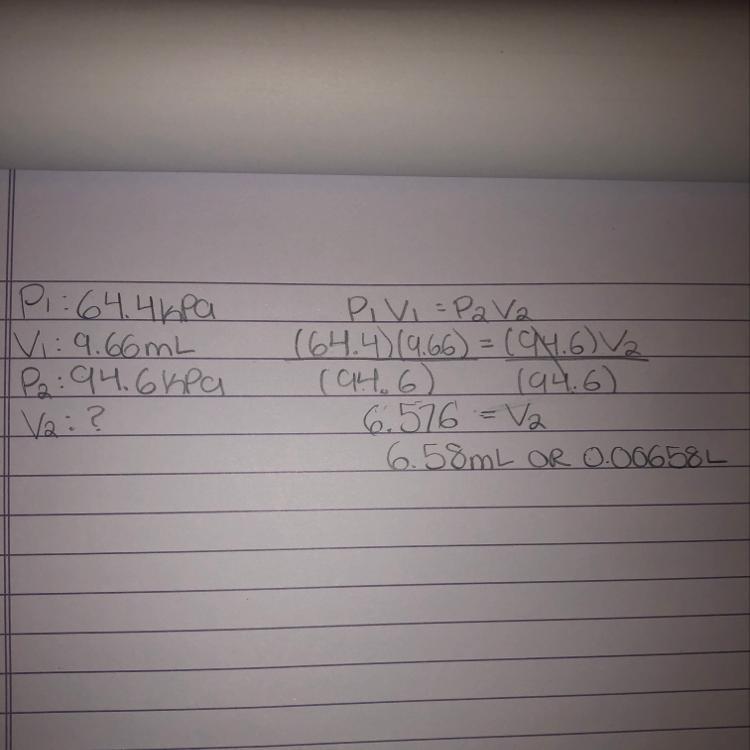 P1: 64.4kPa
V1: 9.66mL
P2: 94.6kPa
V2: ?
P1 V1 = P2 V2
(64.4)(9.66) = (94.6)V2
(94.6) (94.6)
6.576 = V2
6.58mL OR 0.00658L